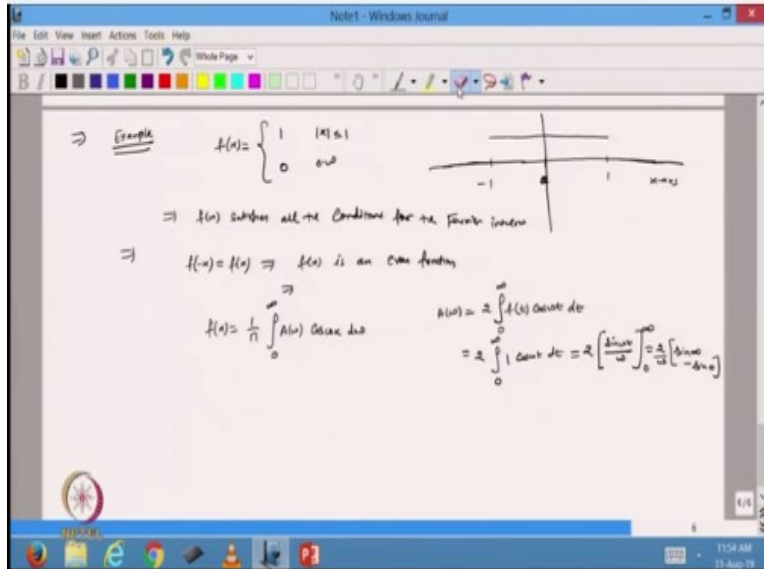 Note1 - Windows Journal
File Edit View Insert Actions Tools Help
Whole Page
B I
⇒ Example f(x) = { 1 |x| ≤ 1
0 o.w
-1 0 1 x-axis
⇒ f(x) satisfies all the Conditions for the Fourier integral
⇒ f(-x) = f(x) ⇒ f(x) is an even function
⇒
f(x) = 1/π ∫_0^∞ A(ω) Cosωx dω
A(ω) = 2 ∫_0^∞ f(t) Cosωt dt
= 2 ∫_0 1 cosωt dt = 2 [sinωt/ω]_0^∞ = 2/ω [sin∞ - sin0]
NPTEL
6/6
6
11:54 AM
31-Aug-19